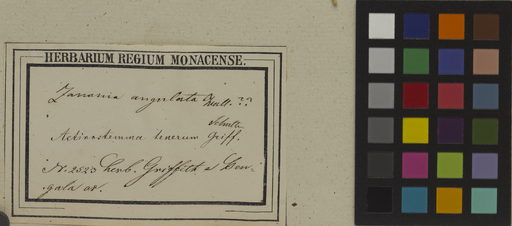 HERBARIUM REGIUM MONACENSE.
Zanonia angulata Wall. ??
Schulte
Actinostemma tenerum Griff.
N. 2523 herb. Griffith e Ben-
gala or.